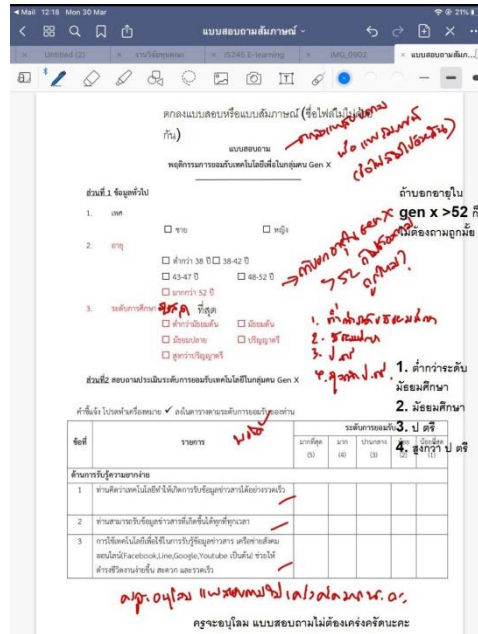 Mail 12:18 Mon 30 Mar
21%
แบบสอบถามสัมภาษณ์
Untitled (2)
งานวิจัยทุนคณะ
IS245 E-learning
IMG_0902
แบบสอบถามสัมภ...
ตกลงแบบสอบหรือแบบสัมภาษณ์ (ชื่อไฟล์ไม่ไปด้วย
กัน)
แบบสอบถาม
พฤติกรรมการยอมรับเทคโนโลยีเพื่อในกลุ่มคน Gen X
ส่วนที่ 1 ข้อมูลทั่วไป
ถ้าบอกอายุใน
gen x >52 ก็
ไม่ต้องถามถูกมั้ย
1. เพศ
☐ ชาย ☐ หญิง
2. อายุ
☐ ต่ำกว่า 38 ปี ☐ 38-42 ปี
☐ 43-47 ปี ☐ 48-52 ปี
☐ มากกว่า 52 ปี
ถูกไหม?
3. ระดับการศึกษา ที่สุด
☐ ต่ำกว่ามัธยมต้น ☐ มัธยมต้น
☐ มัธยมปลาย ☐ ปริญญาตรี
☐ สูงกว่าปริญญาตรี
1. ต่ำกว่าระดับ
มัธยมศึกษา
2. มัธยมศึกษา
3. ป ตรี
4. สูงกว่า ป ตรี
ส่วนที่2 สอบถามประเมินระดับการยอมรับเทคโนโลยีในกลุ่มคน Gen X
คำชี้แจง โปรดทำเครื่องหมาย ✓ ลงในตารางตามระดับการยอมรับของท่าน
ข้อที่ รายการ ระดับการยอมรับ
มากที่สุด (5) มาก (4) ปานกลาง (3) น้อย (2) น้อยที่สุด (1)
ด้านการรับรู้ความยากง่าย
1 ท่านคิดว่าเทคโนโลยีทำให้เกิดการรับข้อมูลข่าวสารได้อย่างรวดเร็ว
2 ท่านสามารถรับข้อมูลข่าวสารที่เกิดขึ้นได้ทุกที่ทุกเวลา
3 การใช้เทคโนโลยีเพื่อใช้ในการรับรู้ข้อมูลข่าวสาร เครือข่ายสังคม
ออนไลน์(Facebook,Line,Google,Youtube เป็นต้น) ช่วยให้
ดำรงชีวิตงานง่ายขึ้น สะดวก และรวดเร็ว
ครูจะอนุโลม แบบสอบถามไม่ต้องเคร่งครัดนะคะ